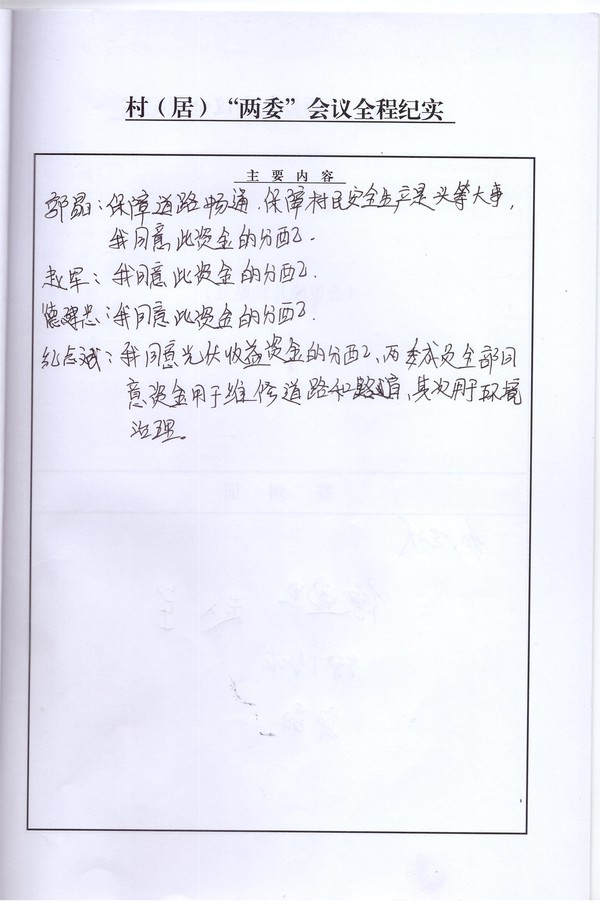 村（居）“两委”会议全程纪实
主要内容
郭昂：保障道路畅通，保障村民安全生产是头等大事，
我同意此资金的分配。
赵军：我同意此资金的分配。
建忠：我同意此资金的分配。
纪志斌：我同意光伏收益资金的分配，两委成员全部同
意资金用于维修道路和路肩，其次用于环境
治理。